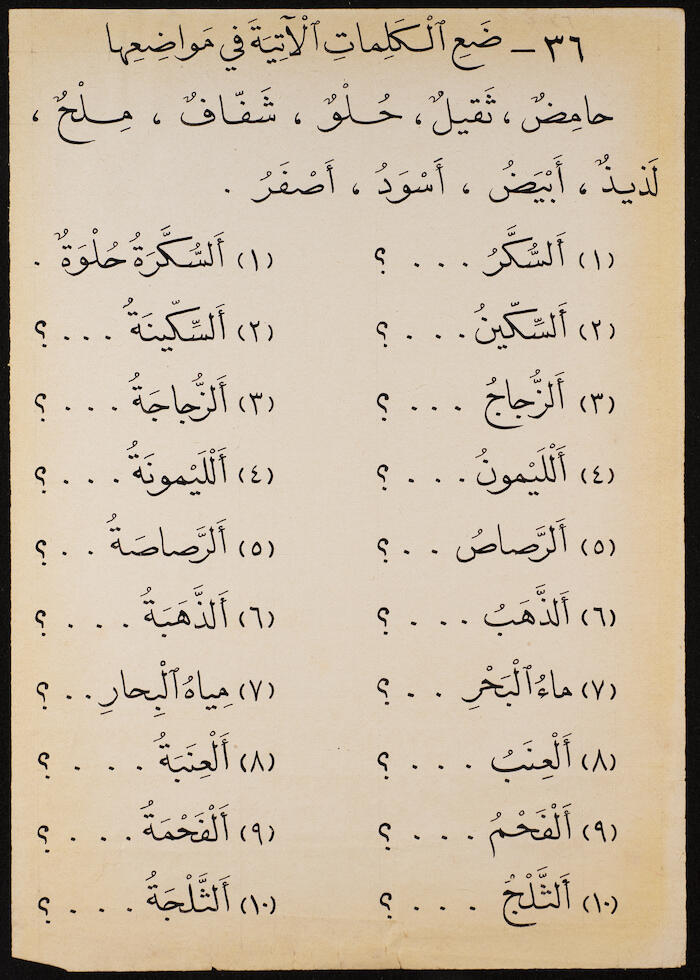 ٣٦ ــ ضَعِ ٱلْكَلِماتِ ٱلْآتِيَةَ في مَواضِعِها
حامِضٌ ، ثَقيلٌ ، حُلْوٌ ، شَفّافٌ ، مِلْحٌ ،
لَذيذٌ ، أَبْيَضُ ، أَسْوَدُ ، أَصْفَرُ .
(١) أَلسُّكَّرُ . . . ؟ (١) أَلسُّكَّرَةُ حُلْوَةٌ .
(٢) أَلسِّكّينُ . . . ؟ (٢) أَلسِّكّينَةُ . . . ؟
(٣) أَلزُّجاجُ . . . ؟ (٣) أَلزُّجاجَةُ . . . ؟
(٤) أَللَّيْمونُ . . . ؟ (٤) أَللَّيْمونَةُ . . . ؟
(٥) أَلرَّصاصُ . . ؟ (٥) أَلرَّصاصَةُ . . ؟
(٦) أَلذَّهَبُ . . . ؟ (٦) أَلذَّهَبَةُ . . . ؟
(٧) ماءُ ٱلْبَحْرِ . . ؟ (٧) مِياهُ ٱلْبِحارِ . . ؟
(٨) أَلْعِنَبُ . . . ؟ (٨) أَلْعِنَبَةُ . . . ؟
(٩) أَلْفَحْمُ . . . ؟ (٩) أَلْفَحْمَةُ . . . ؟
(١٠) أَلثَّلْجُ . . . ؟ (١٠) أَلثَّلْجَةُ . . . ؟